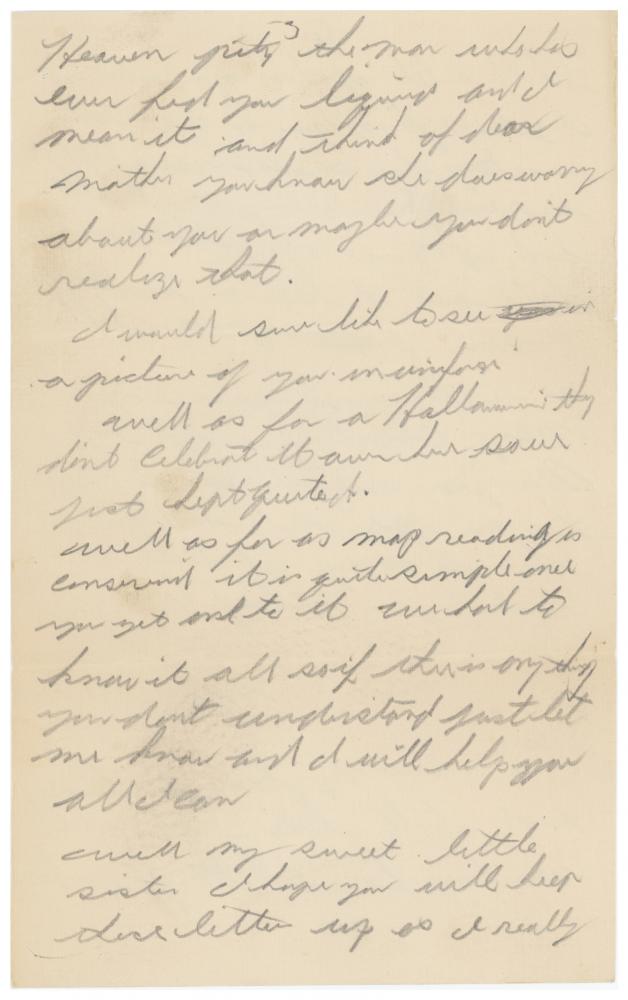 3
Heaven pity the man who has
ever fed you liquing and I
mean it and think of dear
mother you know she does worry
about you or maybe you don't
realize that.
I would sure like to see in
a picture of you in uniform
well as far a Hallowe they
dint celebrat it over her so we
just kept quited.
well as far as map reading is
conserned it is quite simple once
you get onto it we had to
know it all so if ther is any thing
you dont understand just let
me know and I will help you
all I can
well my sweet little
sister I hope you will keep
these letter up as I really